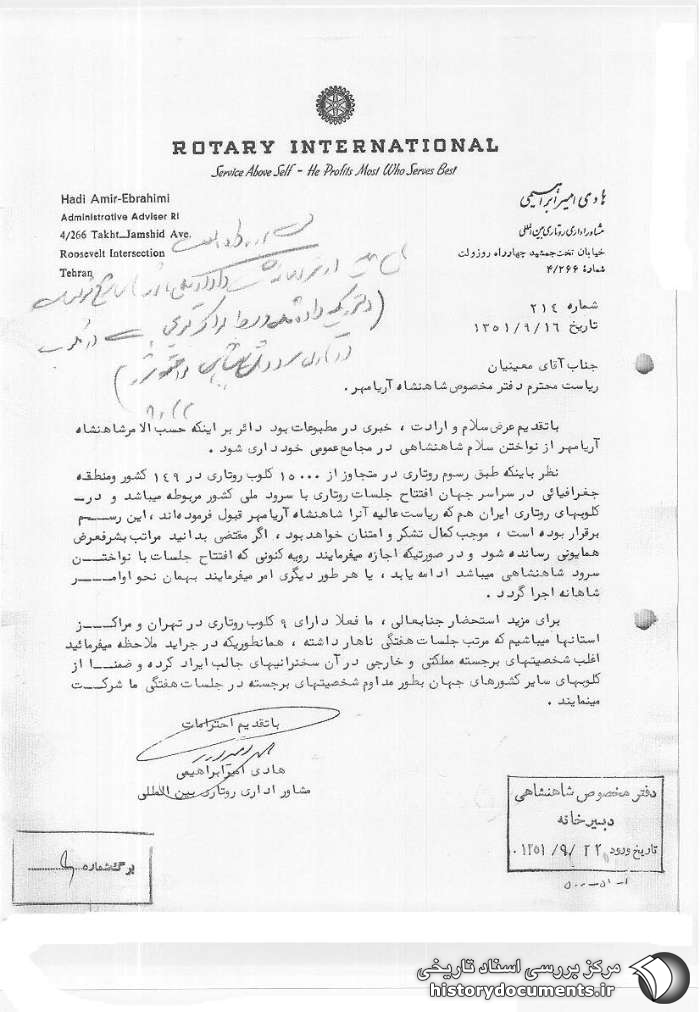 ROTARY INTERNATIONAL
Service Above Self - He Profits Most Who Serves Best
Hadi Amir-Ebrahimi
Administrative Adviser RI
4/266 Takht_Jamshid Ave.
Roosevelt Intersection
Tehran
هادی امیرابراهیمی
مشاور اداری روتاری بین‌المللی
خیابان تخت جمشید چهارراه روزولت
شماره ۴/۲۶۶
شماره ۲۱۴
تاریخ ۱۳۵۱/۹/۱۶
جناب آقای معینیان
ریاست محترم دفتر مخصوص شاهنشاه آریامهر.
با تقدیم عرض سلام و ارادت ، خبری در مطبوعات بود دائر بر اینکه حسب الامر شاهنشاه
آریامهر از نواختن سلام شاهنشاهی در مجامع عمومی خودداری شود .
نظر باینکه طبق رسوم روتاری در متجاوز از ۱۵۰۰۰ کلوب روتاری در ۱۴۹ کشور ومنطقه
جغرافیائی در سراسر جهان افتتاح جلسات روتاری با سرود ملی کشور مربوطه میباشد و در
کلوبهای روتاری ایران هم که ریاست عالیه آنرا شاهنشاه آریامهر قبول فرموده‌اند ، این رسم
برقرار بوده است ، موجب کمال تشکر و امتنان خواهد بود ، اگر مقتضی بدانید مراتب بشرفعرض
همایونی رسانده شود و در صورتیکه اجازه میفرمایند رویه کنونی که افتتاح جلسات با نواختن
سرود شاهنشاهی میباشد ادامه یابد ، یا هر طور دیگری امر میفرمایند بهمان نحو اوامر
شاهانه اجرا گردد .
برای مزید استحضار جنابعالی ، ما فعلا دارای ۹ کلوب روتاری در تهران و مراکز
استانها میباشیم که مرتب جلسات هفتگی ناهار داشته ، همانطوریکه در جراید ملاحظه میفرمائید
اغلب شخصیتهای برجسته مملکتی و خارجی در آن سخنرانیهای جالب ایراد کرده و ضمنا از
کلوبهای سایر کشورهای جهان بطور مداوم شخصیتهای برجسته در جلسات هفتگی ما شرکت
مینمایند .
با تقدیم احترامات
هادی امیرابراهیمی
مشاور اداری روتاری بین المللی
دفتر مخصوص شاهنشاهی
دبیرخانه
تاریخ ورود ۱۳۵۱/۹/۲۲
برگ شماره
مرکز بررسی اسناد تاریخی
historydocuments.ir